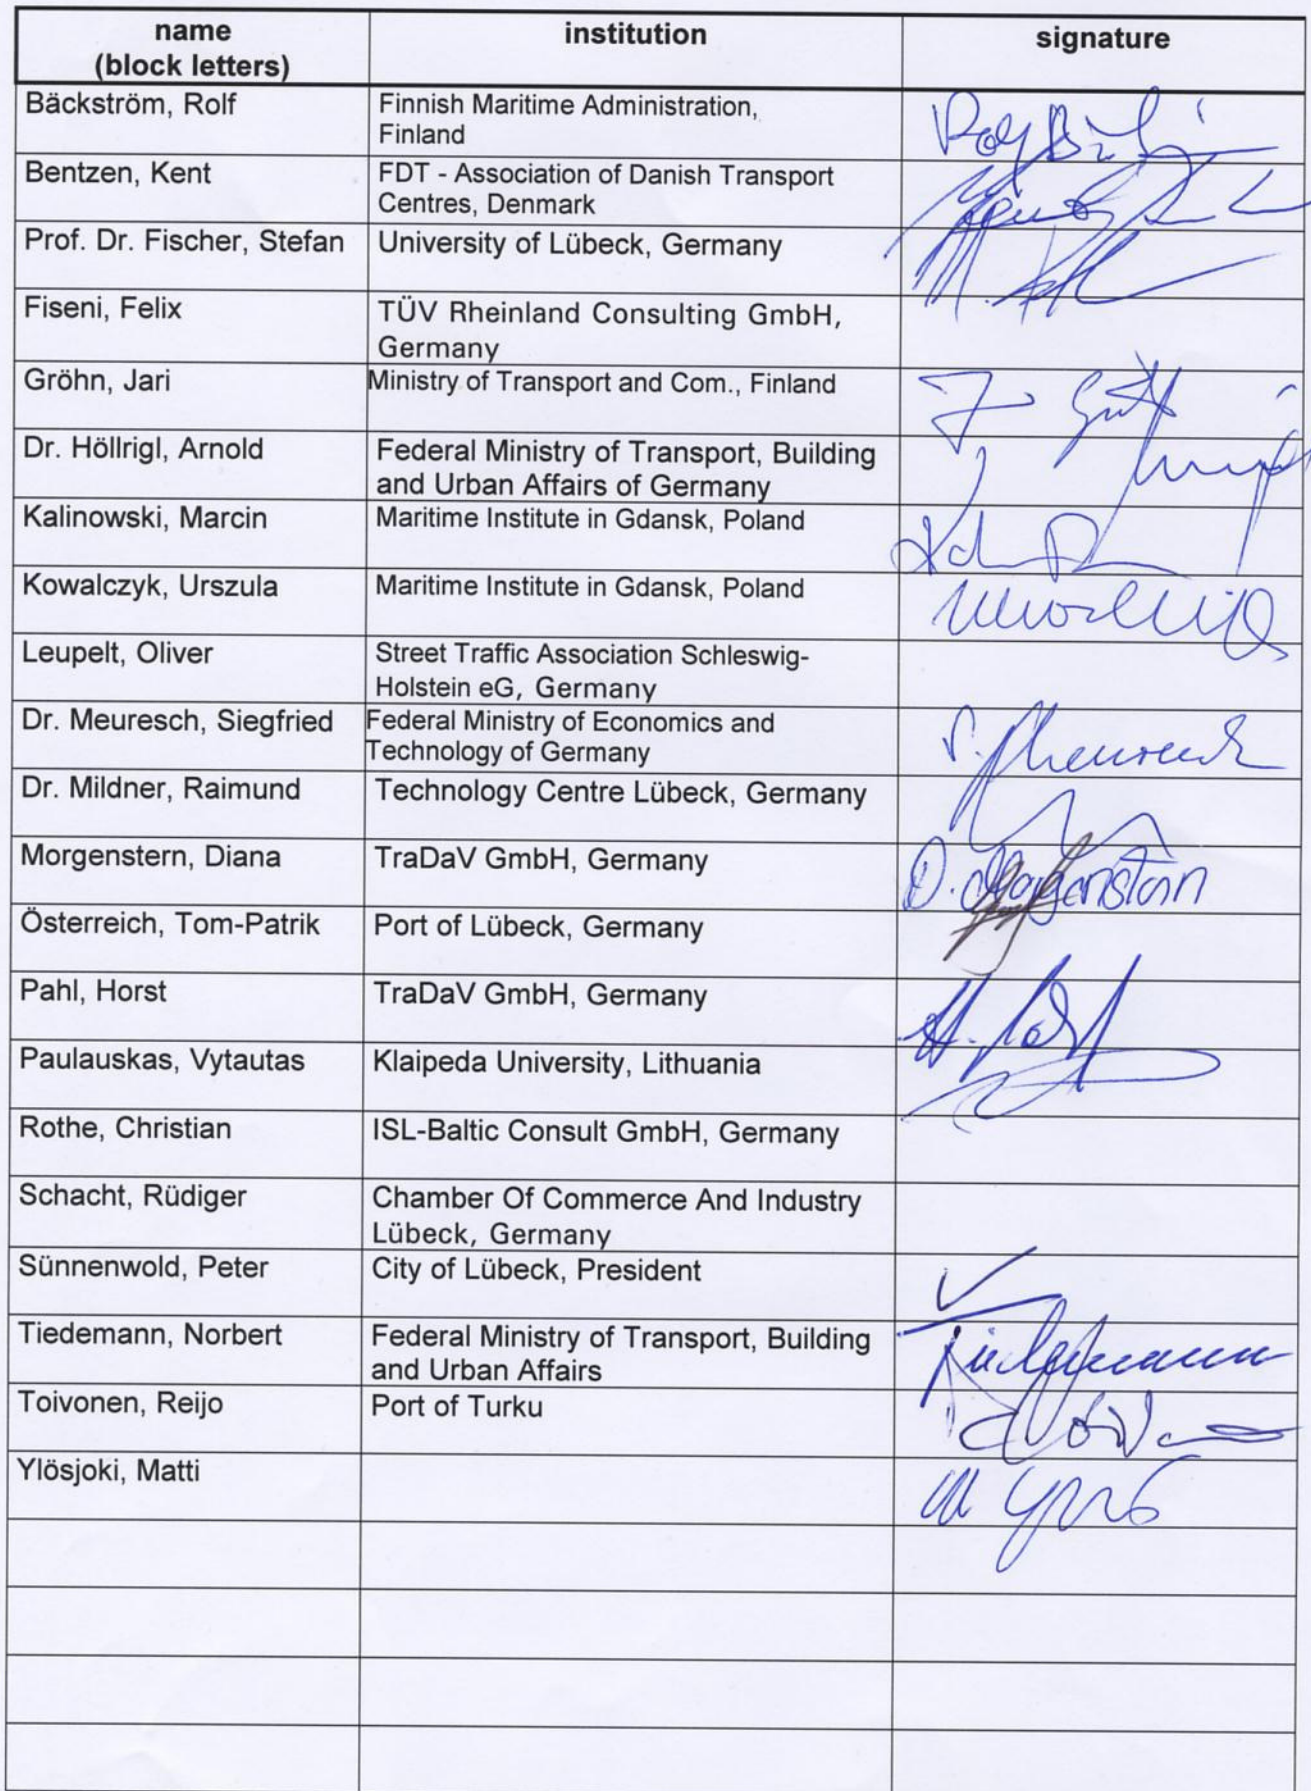 name
(block letters)
institution
signature
Bäckström, Rolf
Finnish Maritime Administration,
Finland
Bentzen, Kent
FDT - Association of Danish Transport
Centres, Denmark
Prof. Dr. Fischer, Stefan
University of Lübeck, Germany
Fiseni, Felix
TÜV Rheinland Consulting GmbH,
Germany
Gröhn, Jari
Ministry of Transport and Com., Finland
Dr. Höllrigl, Arnold
Federal Ministry of Transport, Building
and Urban Affairs of Germany
Kalinowski, Marcin
Maritime Institute in Gdansk, Poland
Kowalczyk, Urszula
Maritime Institute in Gdansk, Poland
Leupelt, Oliver
Street Traffic Association Schleswig-
Holstein eG, Germany
Dr. Meuresch, Siegfried
Federal Ministry of Economics and
Technology of Germany
Dr. Mildner, Raimund
Technology Centre Lübeck, Germany
Morgenstern, Diana
TraDaV GmbH, Germany
D. Morgenstern
Österreich, Tom-Patrik
Port of Lübeck, Germany
Pahl, Horst
TraDaV GmbH, Germany
Paulauskas, Vytautas
Klaipeda University, Lithuania
Rothe, Christian
ISL-Baltic Consult GmbH, Germany
Schacht, Rüdiger
Chamber Of Commerce And Industry
Lübeck, Germany
Sünnenwold, Peter
City of Lübeck, President
Tiedemann, Norbert
Federal Ministry of Transport, Building
and Urban Affairs
Tiedemann
Toivonen, Reijo
Port of Turku
Ylösjoki, Matti